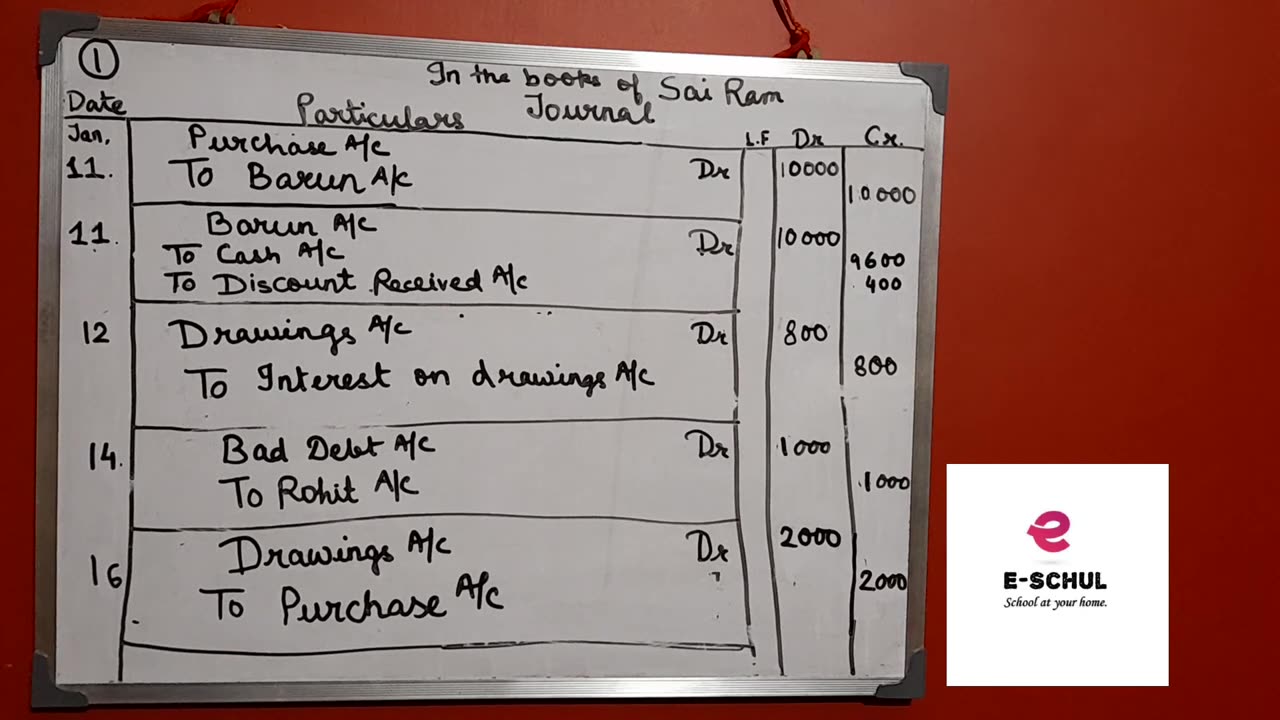 1
In the books of Sai Ram
Journal
Date Particulars L.F Dr Cr.
Jan,
11. Purchase A/c Dr 10000
To Barun A/c 10000
11. Barun A/c Dr 10000
To Cash A/c 9600
To Discount Received A/c 400
12 Drawings A/c Dr 800
To Interest on drawings A/c 800
14. Bad Debt A/c Dr 1000
To Rohit A/c 1000
16 Drawings A/c Dr 2000
To Purchase A/c 2000
e
E-SCHUL
School at your home.